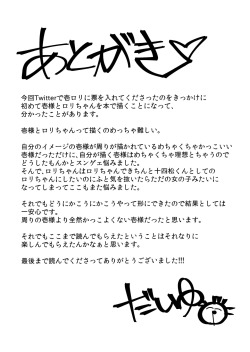 あとがき♡
今回Twitterで壱ロリに票を入れてくださったのをきっかけに
初めて壱様とロリちゃんを本で描くことになって、
分かったことがあります。
壱様とロリちゃんって描くのめっちゃ難しい。
自分のイメージの壱様が周りが描かれているめちゃくちゃかっこいい
壱様だっただけに、自分が描く壱様はめちゃくちゃ理想とちゃうので
どうしたもんかとスンゲェ悩みました。
そんで、ロリちゃんはロリちゃんできちんと十四松くんとしての
ロリちゃんにしたいのにふと気を抜いたらただの女の子みたいに
なってしまってこれまたさらに悩みました。
それでもどうにかこうにかこうやって形にできたので結果としては
一安心です。
周りの壱様より全然かっこよくない壱様だったと思います。
それでもここまで読んでもらえたということはそれなりに
楽しんでもらえたんかなぁと思います。
最後まで読んでくださってありがとうございました!!!
だいゆ